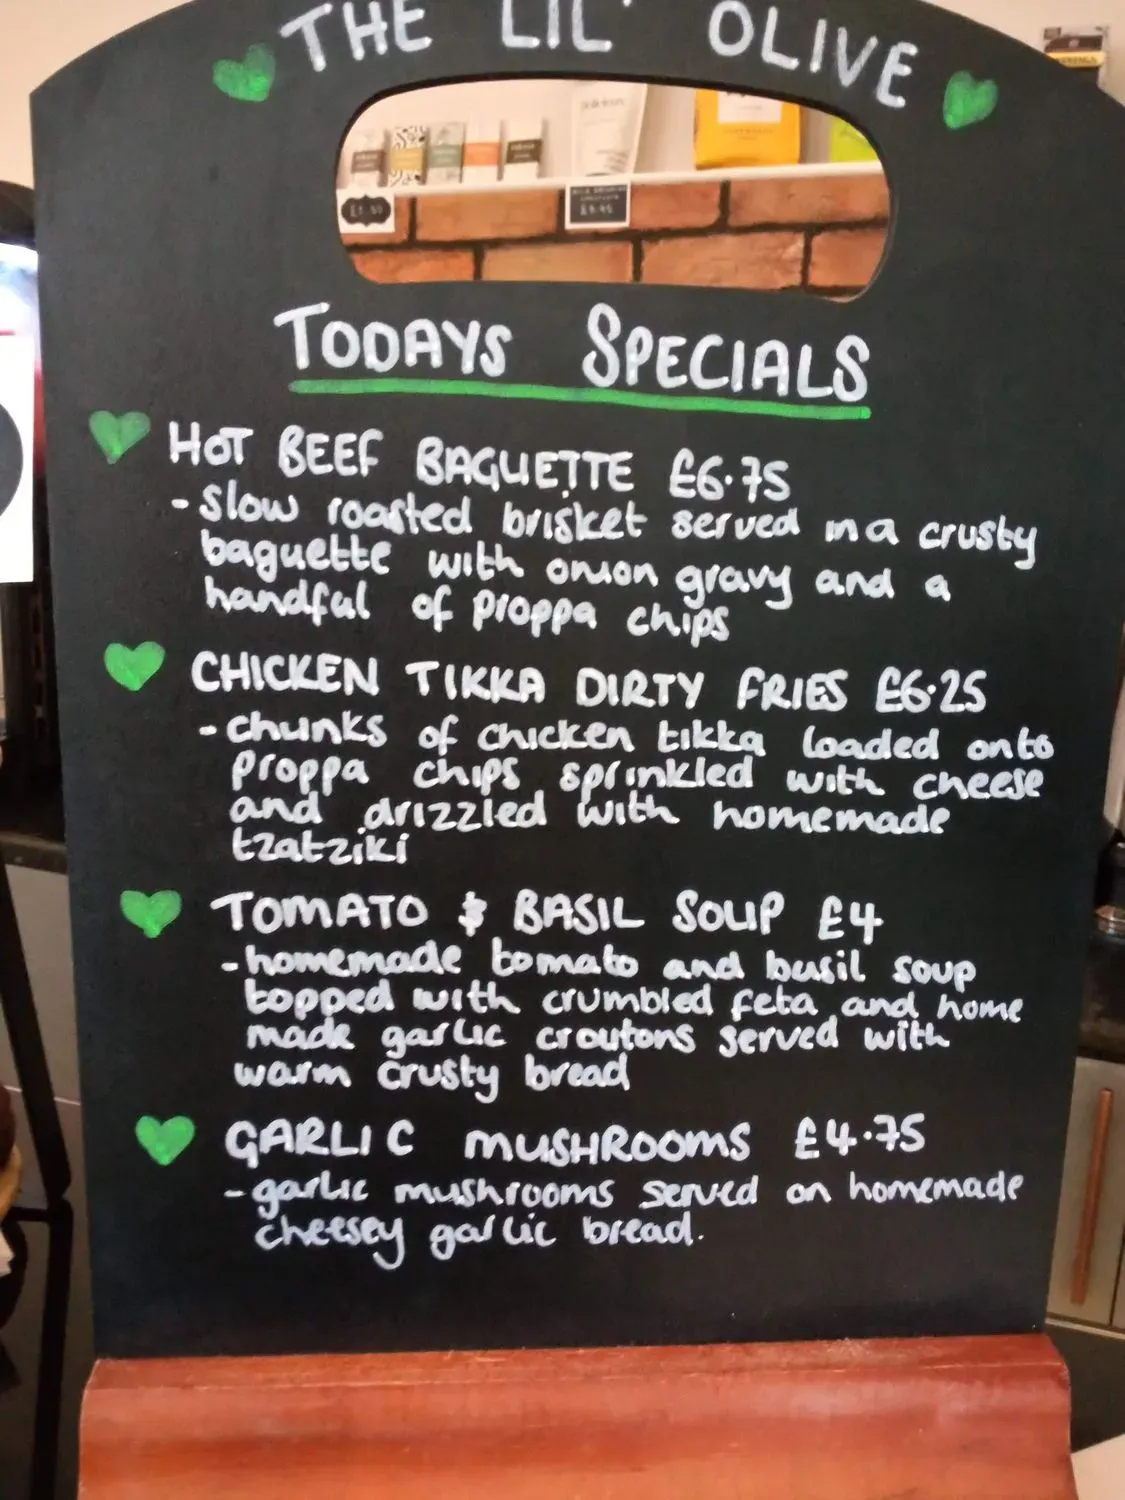 THE LIL' OLIVE
£1.50
£9.95
TODAYS SPECIALS
HOT BEEF BAGUETTE £6.75
- Slow roasted brisket served in a crusty
baguette with onion gravy and a
handful of proppa chips
CHICKEN TIKKA DIRTY FRIES £6.25
- chunks of chicken tikka loaded onto
proppa chips sprinkled with cheese
and drizzled with homemade
tzatziki
TOMATO & BASIL SOUP £4
- homemade tomato and basil soup
topped with crumbled feta and home
made garlic croutons served with
warm crusty bread
GARLIC MUSHROOMS £4.75
- garlic mushrooms served on homemade
cheesey garlic bread.